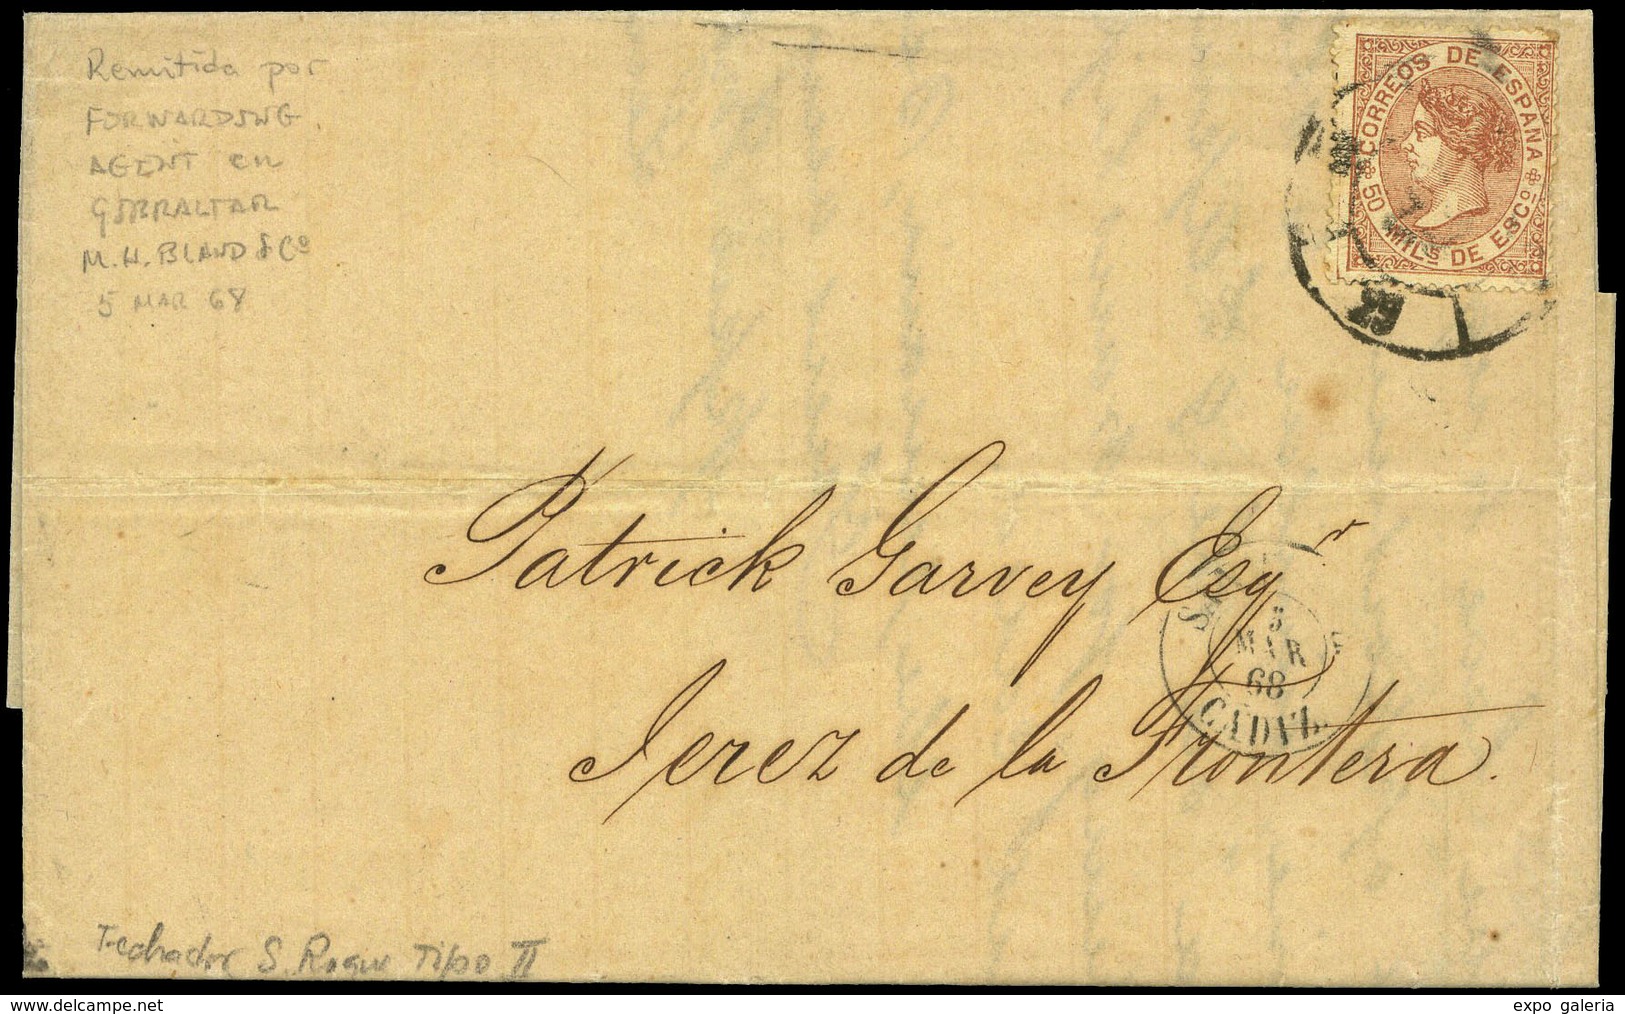 Remitida por
FORWARDING
AGENT en
GIBRALTAR
M.H. BLAND & Co
5 MAR 68
CORREOS DE ESPAÑA
50 MILs DE ESCo
Patrick Garvey Esqr
Jerez de la Frontera.
5
MAR
68
CADIZ.
Fechador S. Roque Tipo II
www.delcampe.net
expo galeria